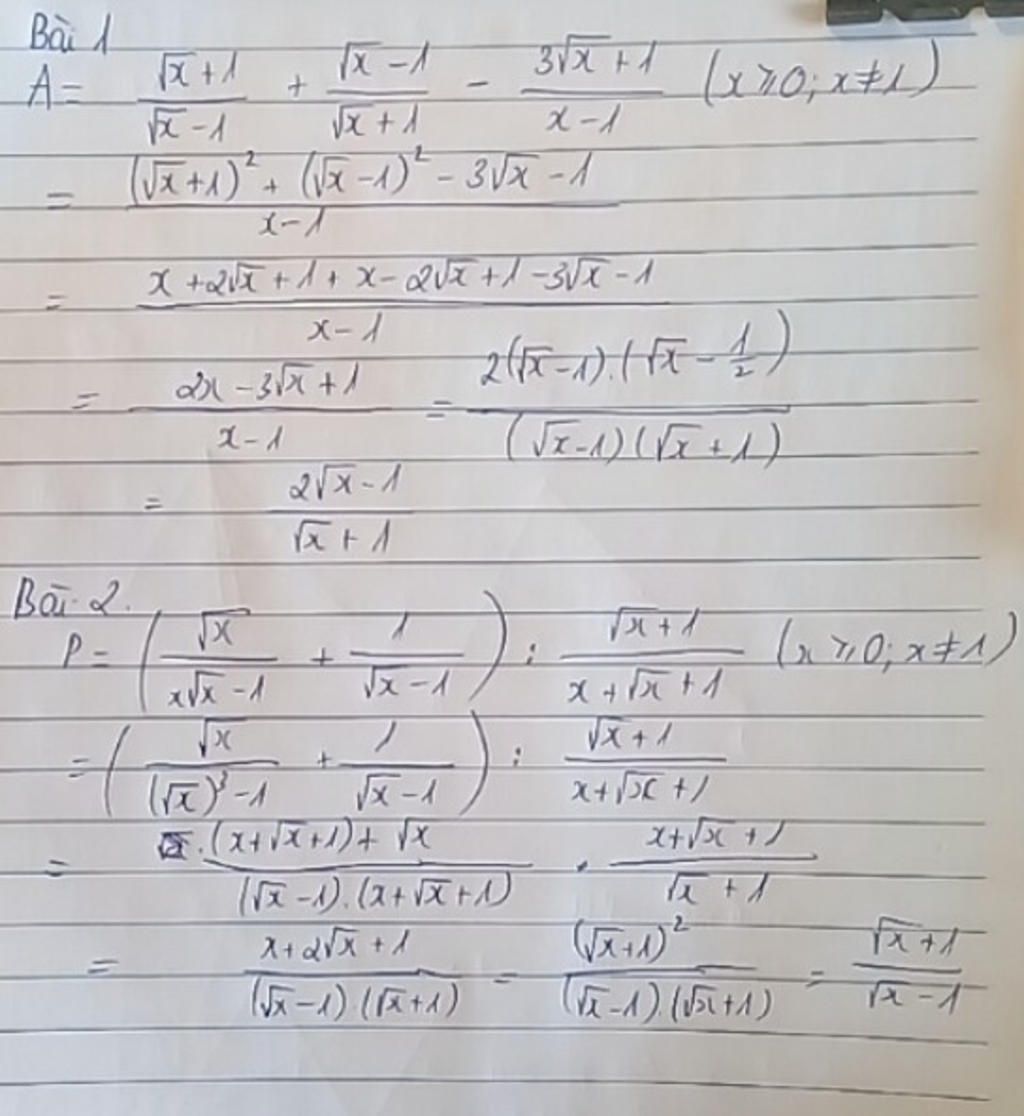 Bài 1
A = (√x + 1)/(√x - 1) + (√x - 1)/(√x + 1) - (3√x + 1)/(x - 1) (x ≥ 0; x ≠ 1)
= ((√x + 1)² + (√x - 1)² - 3√x - 1)/(x - 1)
= (x + 2√x + 1 + x - 2√x + 1 - 3√x - 1)/(x - 1)
= (2x - 3√x + 1)/(x - 1) = (2(√x - 1).(√x - 1/2))/((√x - 1)(√x + 1))
= (2√x - 1)/(√x + 1)
Bài 2.
P = (√x/(x√x - 1) + 1/(√x - 1)) : (√x + 1)/(x + √x + 1) (x ≥ 0; x ≠ 1)
= (√x/((√x)³ - 1) + 1/(√x - 1)) : (√x + 1)/(x + √x + 1)
= (.(x + √x + 1) + √x)/((√x - 1).(x + √x + 1)) . (x + √x + 1)/(√x + 1)
= (x + 2√x + 1)/((√x - 1).(√x + 1)) = (√x + 1)²/((√x - 1).(√x + 1)) = (√x + 1)/(√x - 1)